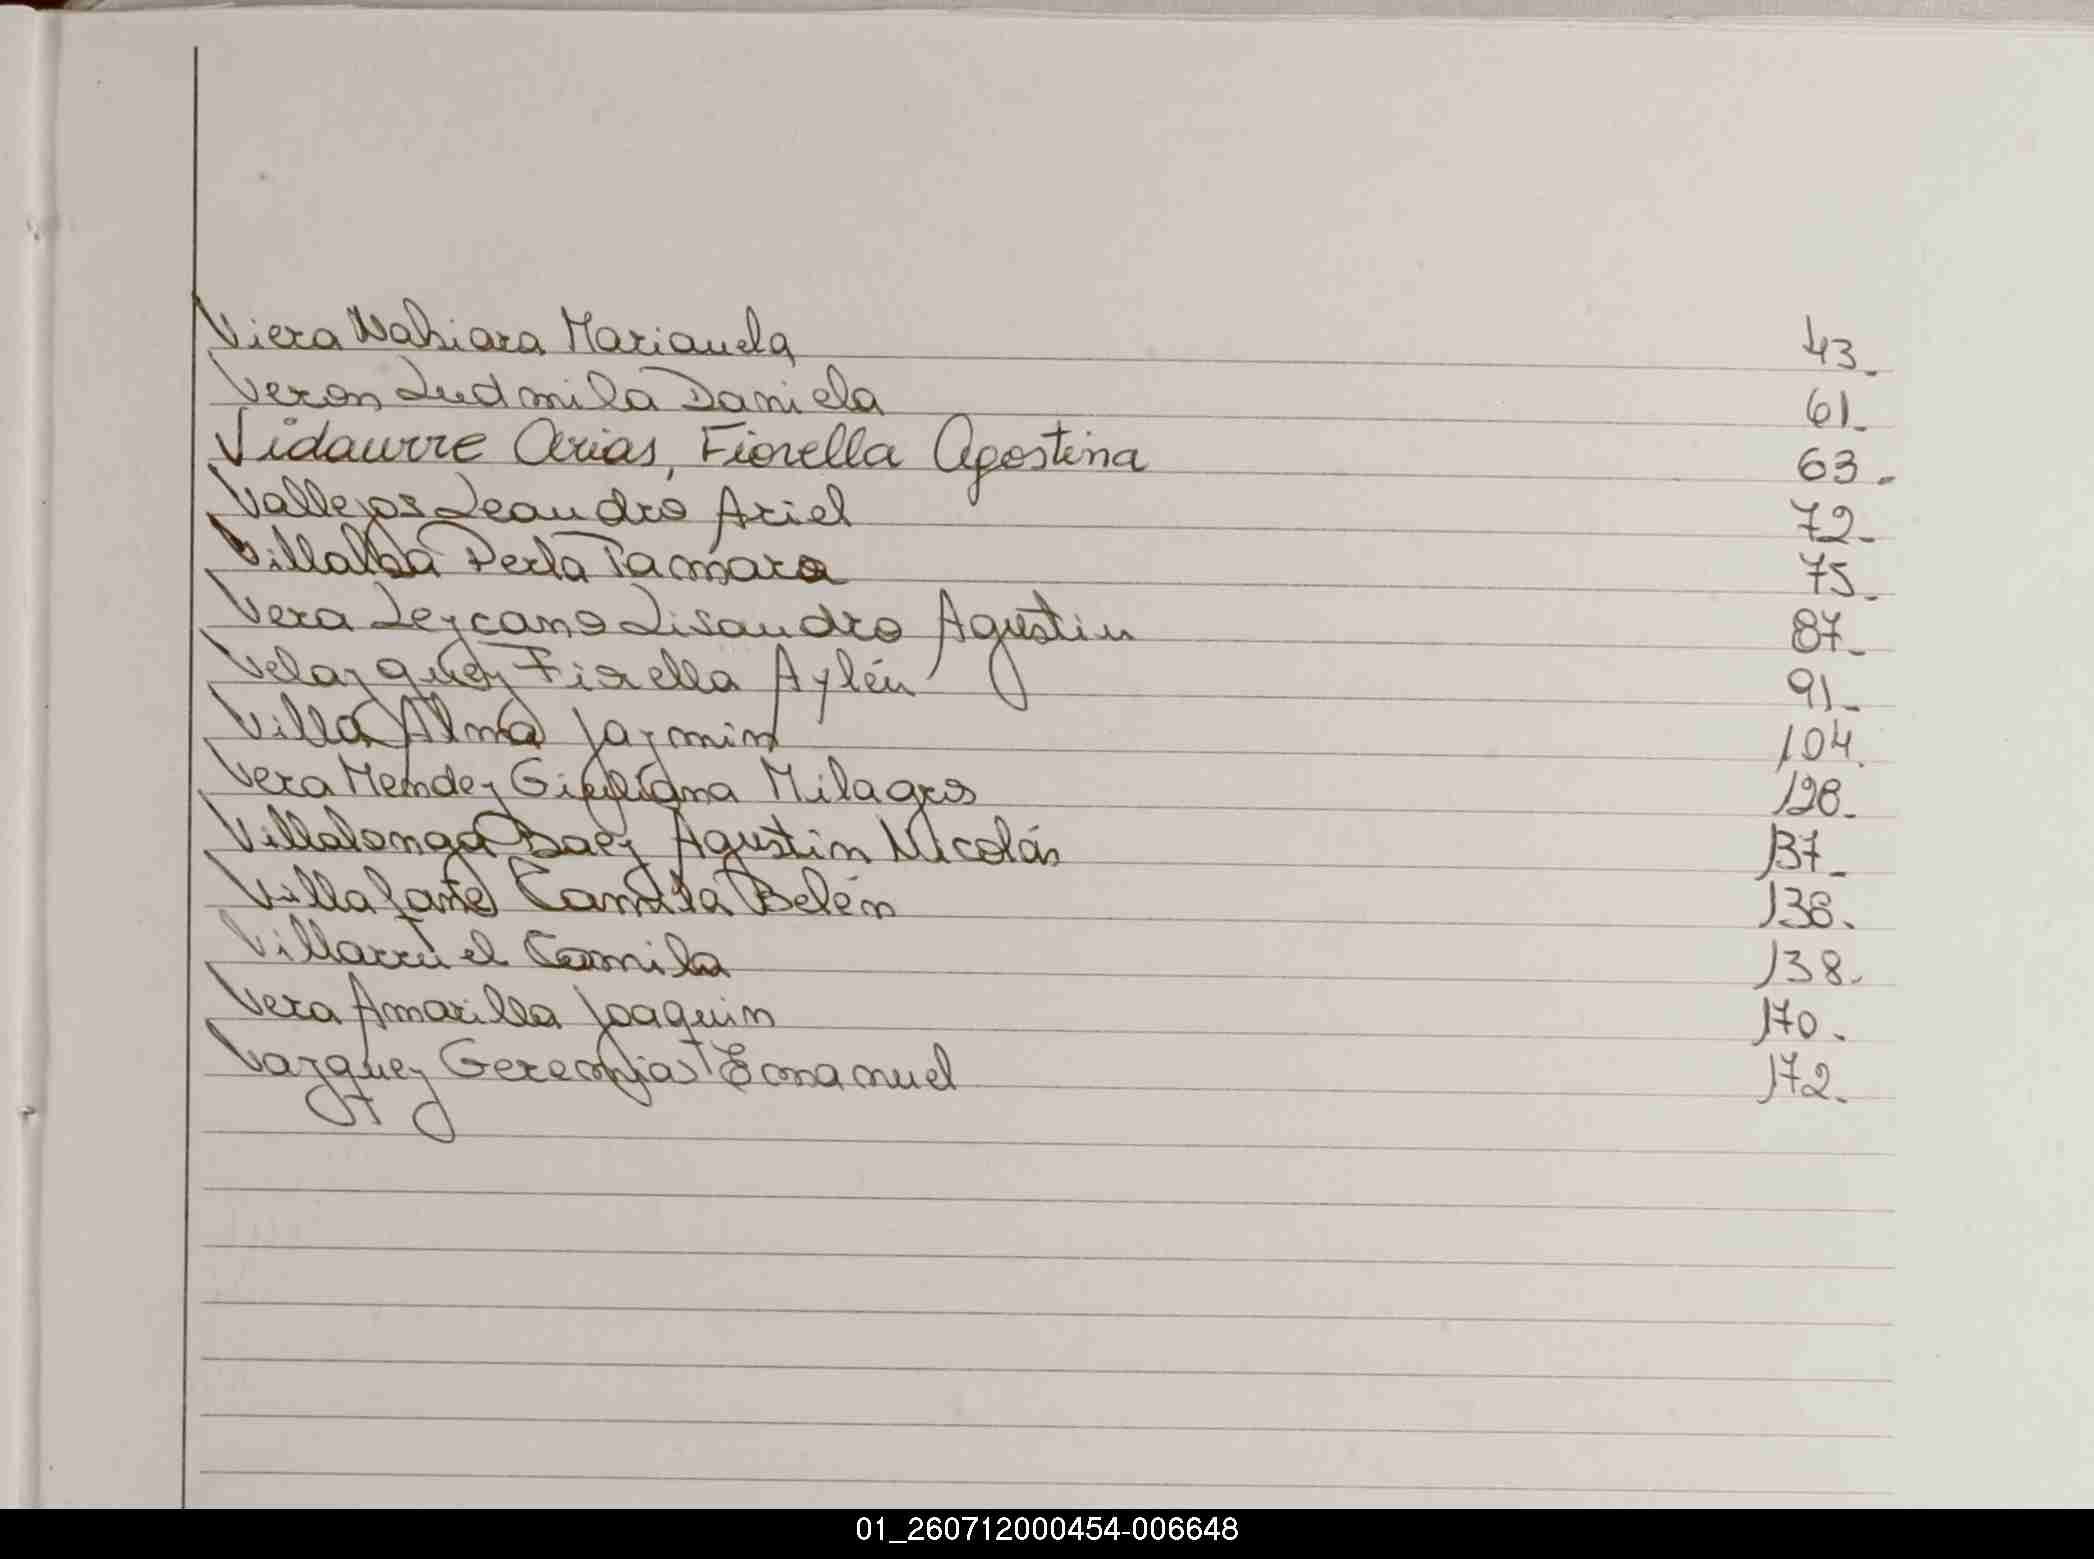 Viera Nahiara Marianela 43.
Veron Ludmila Daniela 61.
Vidaurre Arias, Fiorella Agostina 63.
Vallejos Leandro Ariel 72.
Villalba Perla Tamara 75.
Vera Lezcano Lisandro Agustin 87.
Velazquez Fiorella Aylén 91.
Villa Alma Jazmin 104.
Vera Mendez Giuliana Milagros 128.
Villalonga Baez Agustin Nicolás 137.
Villafañe Camila Belén 138.
Villarruel Camila 138.
Vera Amarilla Joaquin 170.
Vazquez Geremias Emanuel 172.
01_260712000454-006648